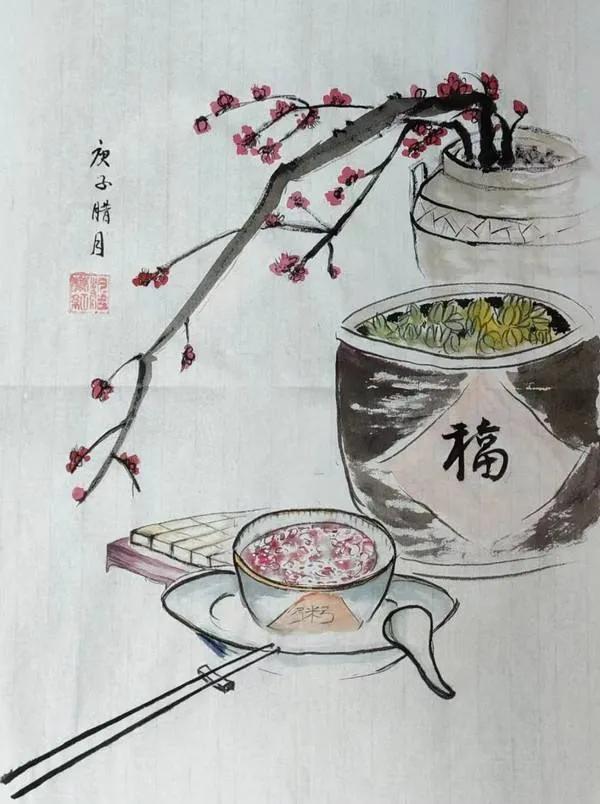 庚子腊月
福
粥